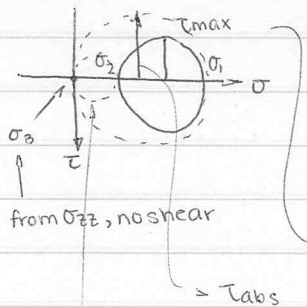 τmax
σ₂ σ₁ σ
σ₃ τ
from σzz, no shear
τabs